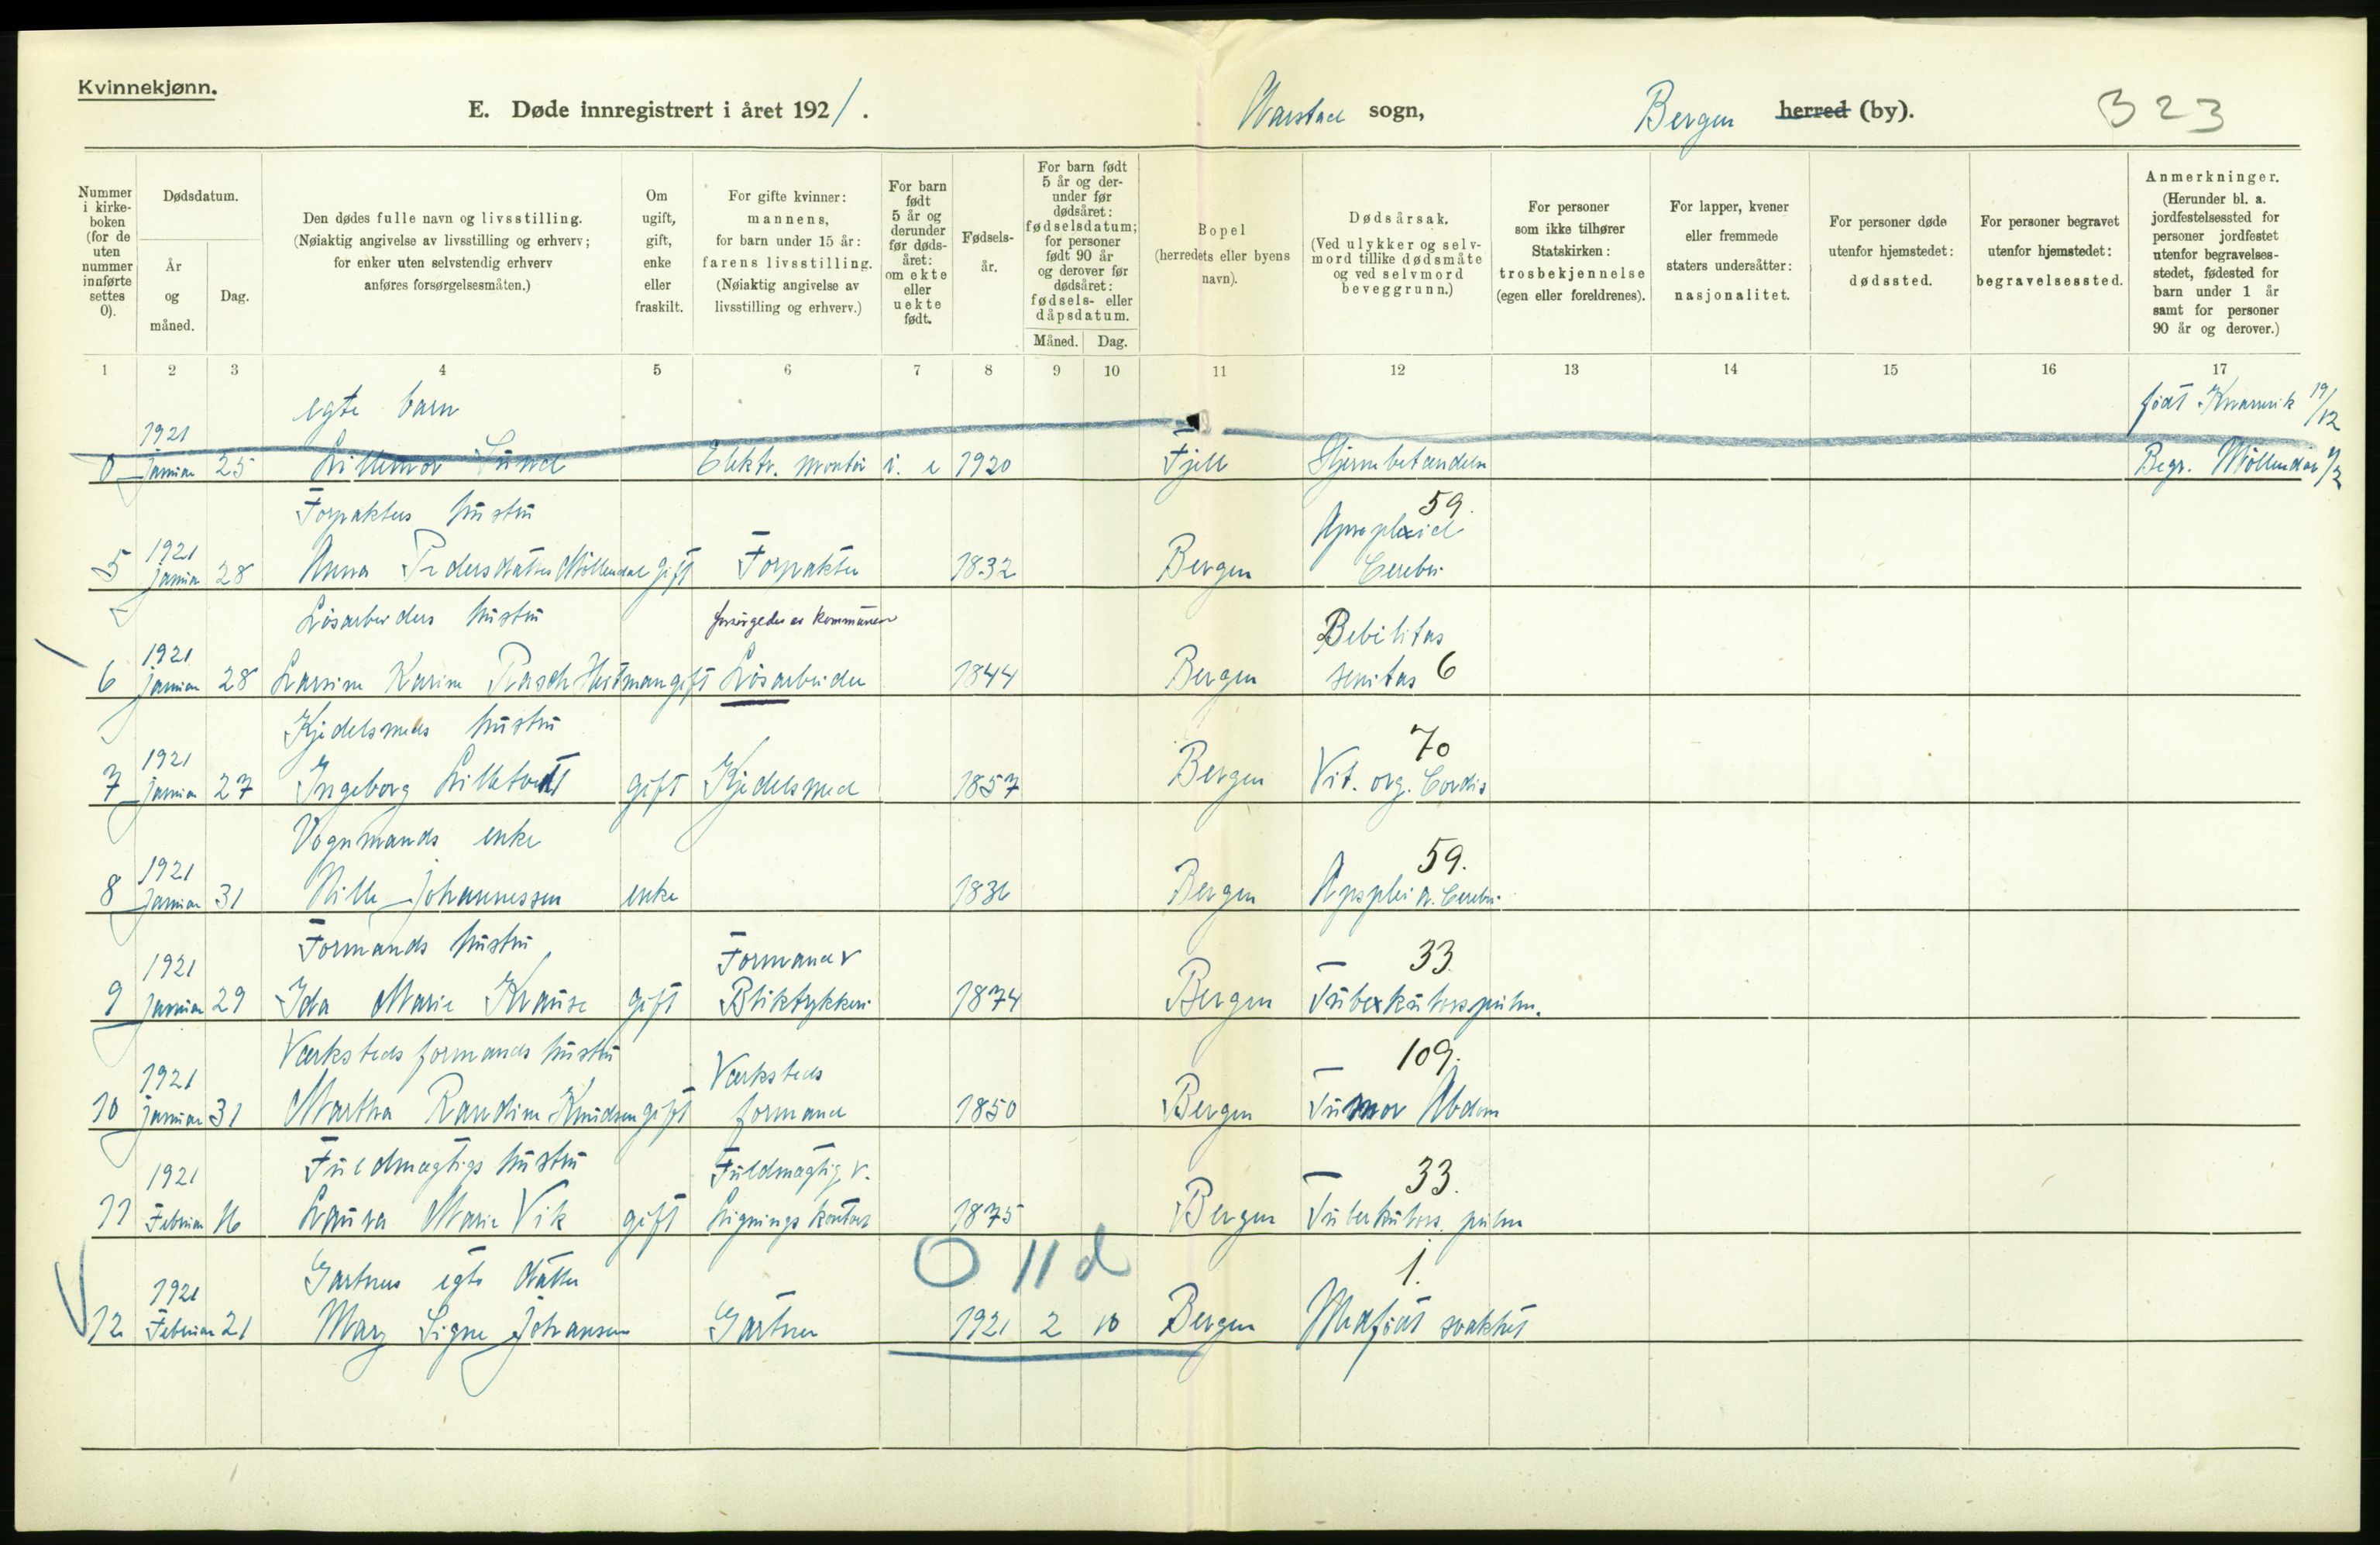 Kvinnekjønn.
E. Døde innregistrert i året 1921.
sogn,
Bergen herred (by).
323
Nummer i kirkeboken (for de uten nummer innførte settes 0).
Dødsdatum.
År og måned.
Dag.
Den dødes fulle navn og livsstilling.
(Nøiaktig angivelse av livsstilling og erhverv;
for enker uten selvstendig erhverv
anføres forsørgelsesmåten.)
Om ugift, gift, enke eller fraskilt.
For gifte kvinner: mannens, for barn under 15 år: farens livsstilling. (Nøiaktig angivelse av livsstilling og erhverv.)
For barn født 5 år og derunder før dødsåret: om ekte eller uekte født.
Fødselsår.
For barn født 5 år og derunder før dødsåret: fødselsdatum; for personer født 90 år og derover før dødsåret: fødsels- eller dåpsdatum.
Måned. Dag.
Bopel (herredets eller byens navn).
Dødsårsak. (Ved ulykker og selvmord tillike dødsmåte og ved selvmord beveggrunn.)
For personer som ikke tilhører Statskirken: trosbekjennelse (egen eller foreldrenes).
For lapper, kvener eller fremmede staters undersåtter: nasjonalitet.
For personer døde utenfor hjemstedet: dødssted.
For personer begravet utenfor hjemstedet: begravelsessted.
Anmerkninger. (Herunder bl. a. jordfestelsessted for personer jordfestet utenfor begravelsesstedet, fødested for barn under 1 år samt for personer 90 år og derover.)
1 2 3 4 5 6 7 8 9 10 11 12 13 14 15 16 17
egte barn født 19/12
1921
0 januar 25 Lillemor Sund Elektr. montör i. e 1920 Fjell Hjernebetændelse Begr. Möllendal
Forpakters hustru 59.
1921 Apoplexid
5 januar 28 Anna Pedersdatter Möllendal gift Forpakter 1832 Bergen Cerebri
Lösarbeiders hustru forsörgedes av kommunen Debilitas
1921
6 januar 28 Larsine Karine Rasch Hestman gift Lösarbeider 1844 Bergen senitas 6
Kjedelsmeds hustru 70
1921
7 januar 27 Ingeborg Lilletvedt gift Kjedelsmed 1857 Bergen Vit. org. Cordis
Vognmands enke 59.
1921
8 januar 31 Nille Johannessen enke 1836 Bergen Apoplei a. Cerebri
Formands hustru Formand v 33.
1921
9 januar 29 Ida Marie Krause gift Bliktrykkeri 1874 Bergen Tuberkulose pulm.
Værksteds formands hustru Værksteds 109.
1921
10 januar 31 Martha Randine Knudsen gift formand 1850 Bergen Tumor Abdom
Fuldmægtigs hustru Fuldmægtig v. 33.
1921
11 Februar 16 Laura Marie Vik gift Ligningskontor 1875 Bergen Tuberkulos. pulm
0 11 d
Gartners egte datter 1.
1921
12 Februar 21 Mary Signe Johansen Gartner 1921 2 10 Bergen Medfödt svakhet